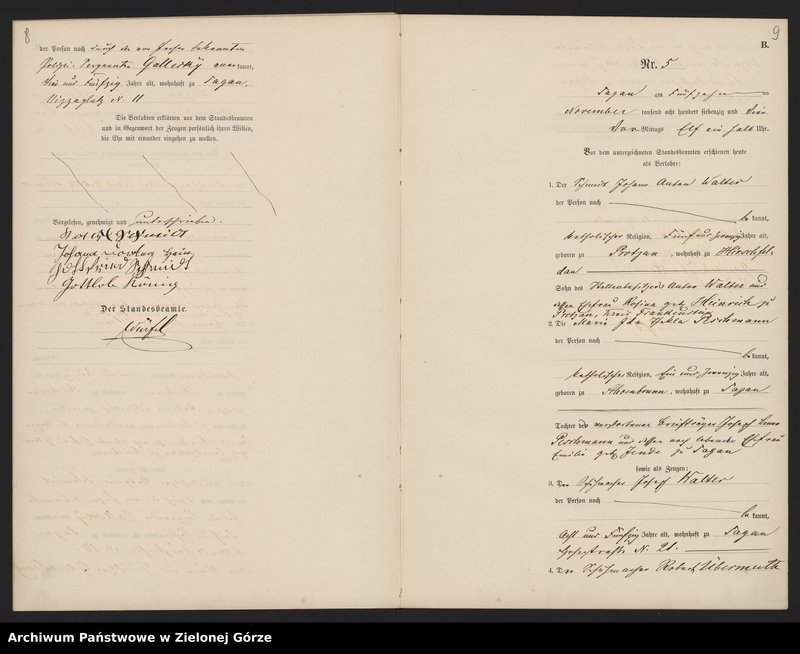 8
der Person nach durch den von Person bekannten
Polizei-Sergeanten Gallesky anerkannt,
drei und Fünfzig Jahre alt, wohnhaft zu Sagan,
N. 11
Die Verlobten erklärten vor dem Standesbeamten
und in Gegenwart der Zeugen persönlich ihren Willen,
die Ehe mit einander eingehen zu wollen.
Vorgelesen, genehmigt und unterschrieben.
Schmidt
Johann
Gottfried Schmidt
Gottlob König
Der Standesbeamte.
Würfel
9
B.
Nr. 5
Sagan am Fünfzehnten
November tausend acht hundert siebenzig und vier
Vor Mittags Elf ein halb Uhr.
Vor dem unterzeichneten Standesbeamten erschienen heute
als Verlobte:
1. Der Schmidt Johann Anton Walter
der Person nach
bekannt,
katholischer Religion, Fünf und zwanzig Jahre alt,
geboren zu Protzan, wohnhaft zu Hirschfel-
dau
Sohn des Stellenbesitzers Anton Walter und
dessen Ehefrau Rosina geb. Heinrich zu
Protzan, Kreis Frankenstein
2. Die Marie Ida Thekla Peschmann
der Person nach
bekannt,
katholischer Religion, Ein und zwanzig Jahre alt,
geboren zu, wohnhaft zu Sagan
Tochter des verstorbenen Briefträgers Josef
Peschmann und dessen noch lebende Ehefrau
Emilie geb. zu Sagan
sowie als Zeugen:
3. Der Schuhmacher Josef Walter
der Person nach
bekannt,
Acht und Fünfzig Jahre alt, wohnhaft zu Sagan
N. 21.
4. Der Schuhmacher Robert Übermuth
Archiwum Państwowe w Zielonej Górze